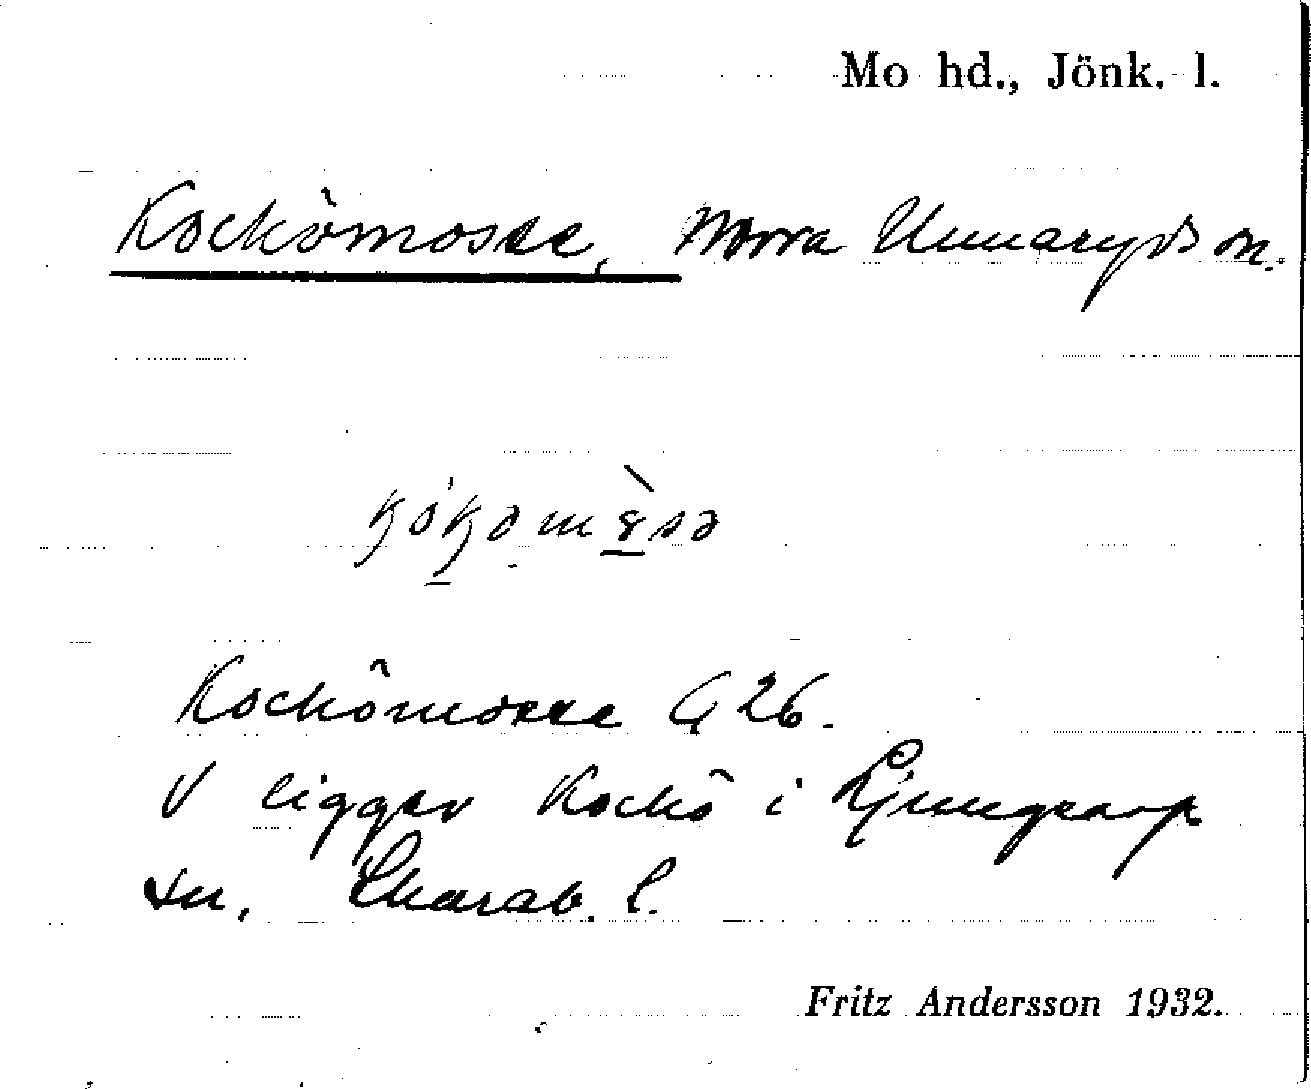 Mo hd., Jönk. l.
Kockömosse, Norra Unnaryds sn.
Kockömosse G 26.
V ligger Kockö i Ljungarp
sn, Skarab. l.
Fritz Andersson 1932.